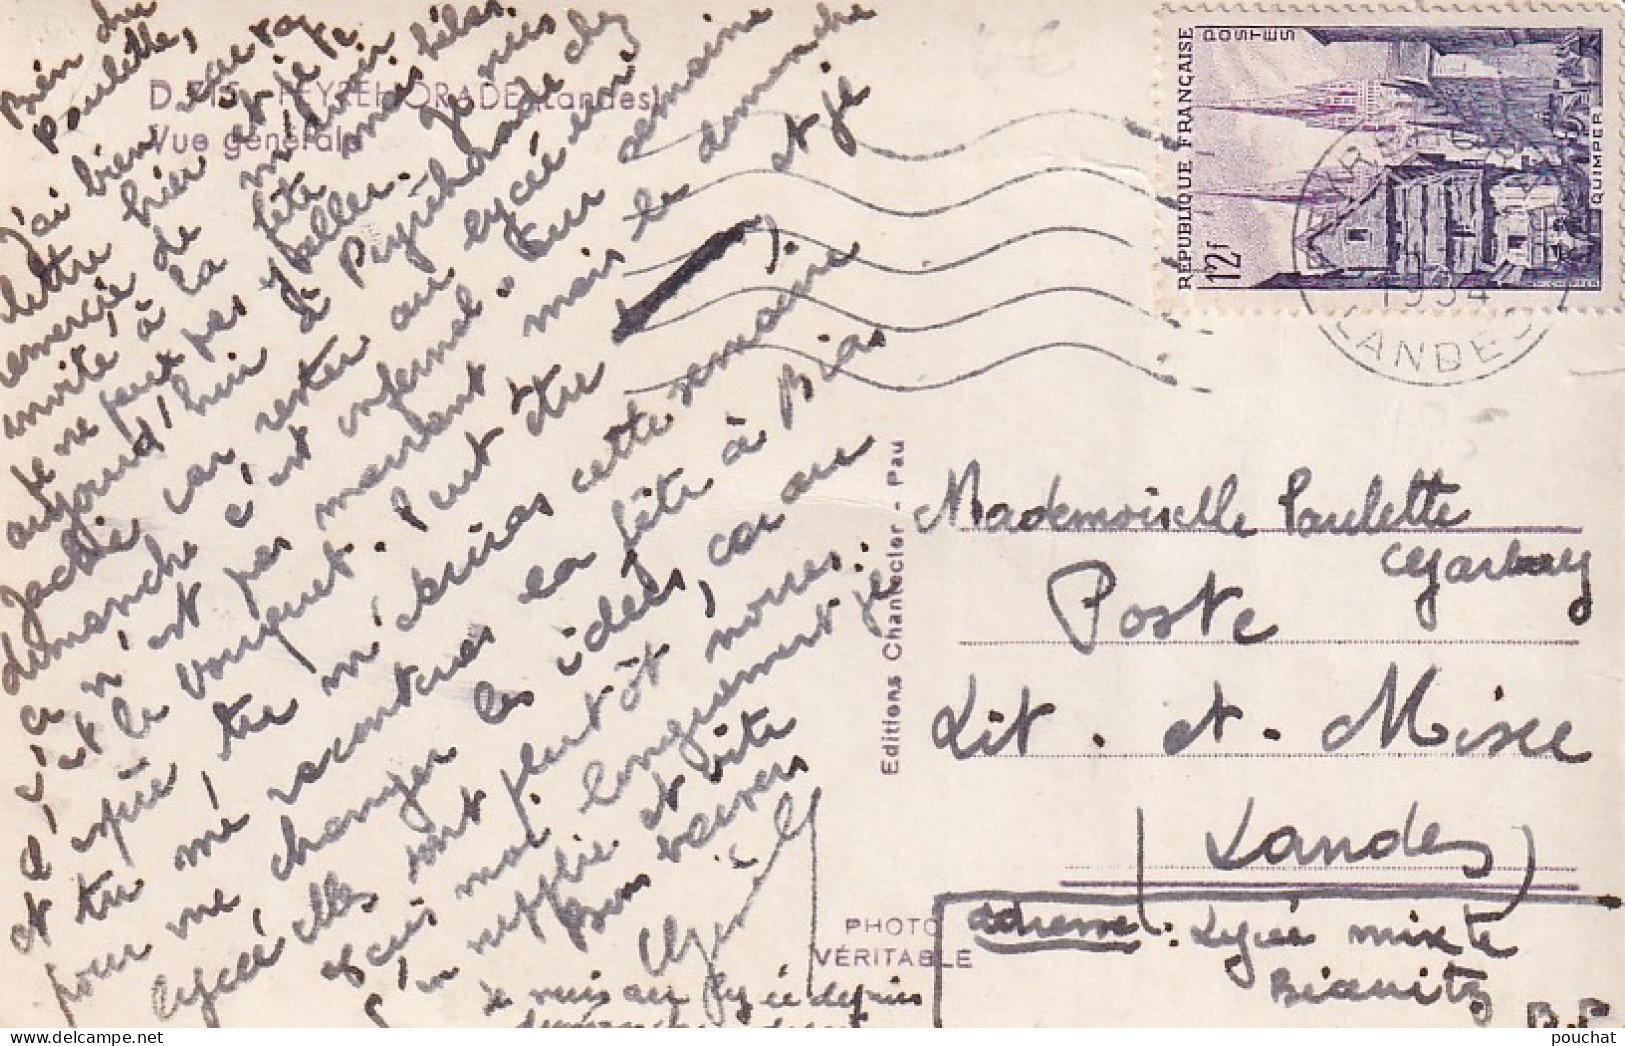 Bien du
Paulette,
J'ai bien eu ta
lettre hier et je te
remercie de m'avoir
invité à la fête mais hélas.
Je ne peux pas y aller. Je suis
aujourd'hui à Peyrehorade chez
Jackie car rester au lycée un
dimanche c'est infernal. Sur semaine
ce n'est pas marrant mais le dimanche
c'est le bouquet. Peut être
et tu m'écrires cette semaine
tu me raconteras la fête à Bias
pour me changer les idées, car au
lycée, elles sont plutôt noires.
écris moi longuement je
t'en supplie et vite
Bons baisers
Je suis au Lycée depuis
D. PEYREHORADE (Landes)
Vue générale
Editions Chantecler - Pau
PHOTO
VÉRITABLE
RÉPUBLIQUE FRANÇAISE
POSTES
12f
QUIMPER
1954
LANDES
Mademoiselle Paulette
Poste
Lit. et. Mixe
Landes
adresse: Lycée mixte
Biarritz
B.P
https://www.delcampe.net
pouchat